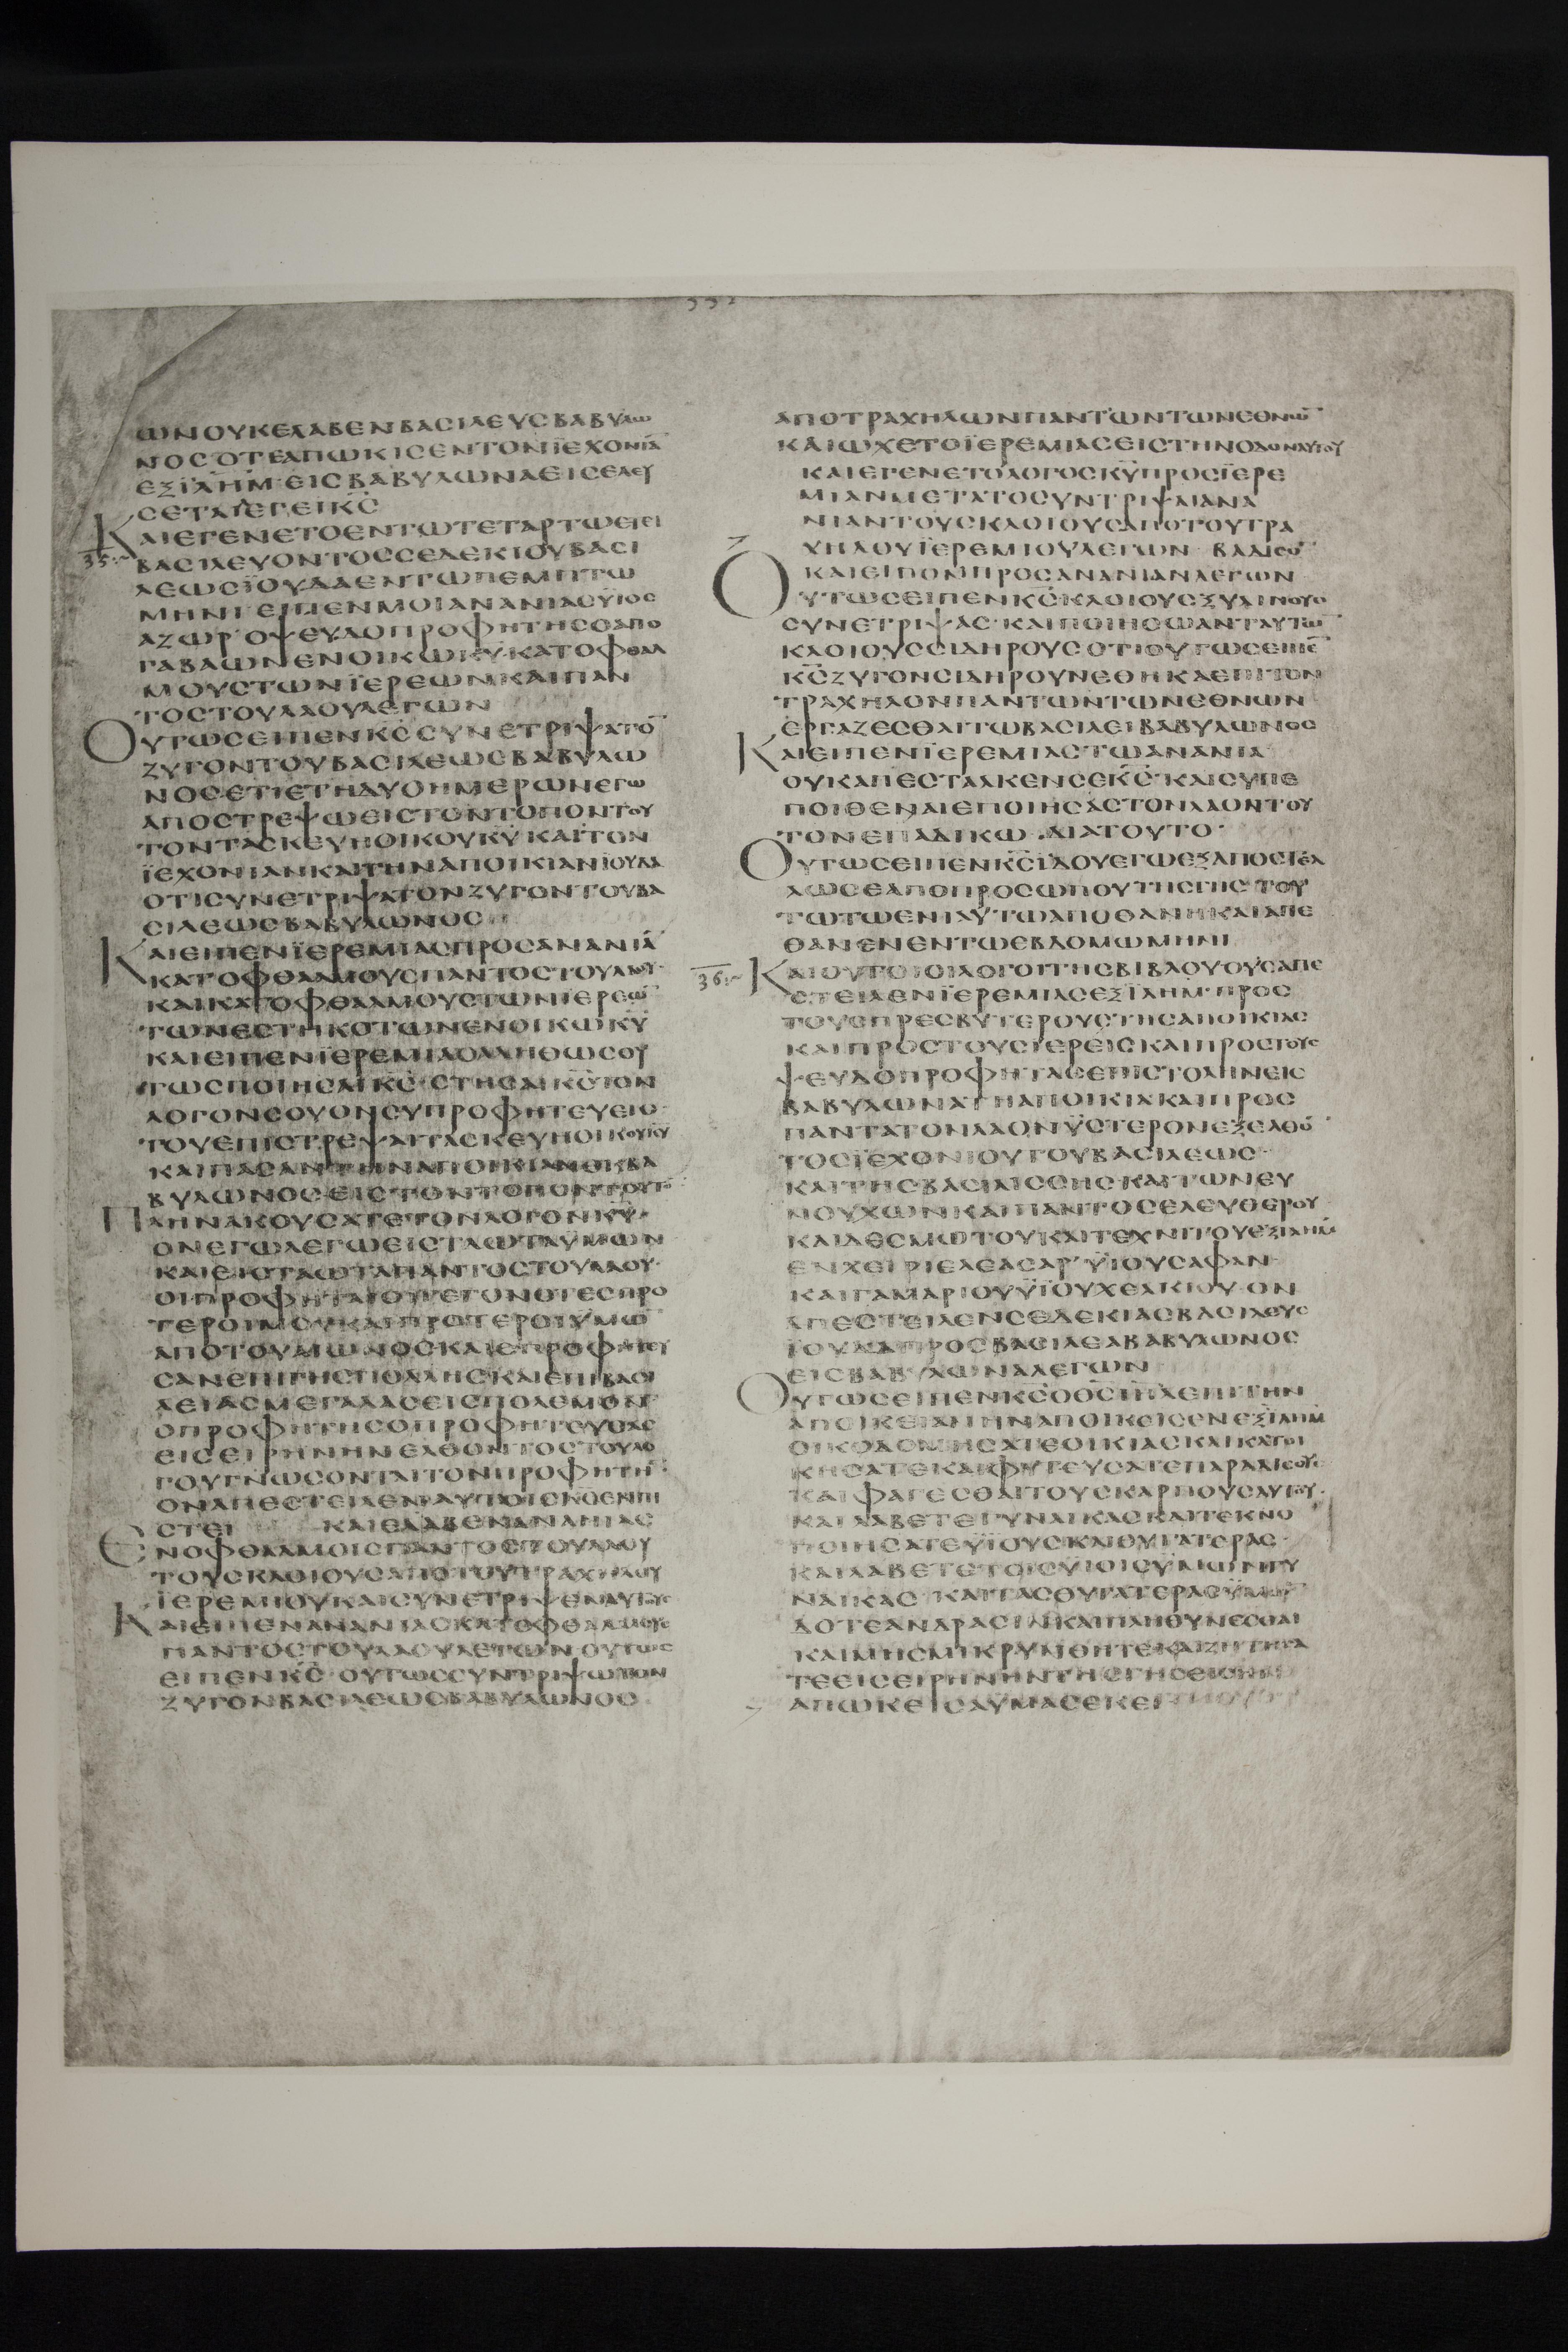 ΩΝΟΥΚΕΛΑΒΕΝΒΑϹΙΛΕΥϹΒΑΒΥΛΩ
ΝΟϹΟΤΕΑΠΩΚΙϹΕΝΤΟΝΪΕΧΟΝΙΑ̅
ΕΞΙΛΗΜ·ΕΙϹΒΑΒΥΛΩΝΑΕΙϹΕΛΕΥ
ϹΕΤΑΙΛΕΓΕΙΚϹ̅
ΚΑΙΕΓΕΝΕΤΟΕΝΤΩΤΕΤΑΡΤΩΕΤΕΙ
35
ΒΑϹΙΛΕΥΟΝΤΟϹϹΕΔΕΚΙΟΥΒΑϹΙ
ΛΕΩϹΪΟΥΔΑΕΝΤΩΠΕΜΠΤΩ
ΜΗΝΙ·ΕΙΠΕΝΜΟΙΑΝΑΝΙΑϹΥΙΟϹ
ΑΖΩΡ·ΟΨΕΥΔΟΠΡΟΦΗΤΗϹΟΑΠΟ
ΓΑΒΑΩΝΕΝΟΙΚΩΚΥ̅·ΚΑΤΟΦΘΑΛ
ΜΟΥϹΤΩΝΪΕΡΕΩΝΚΑΙΠΑΝ
ΤΟϹΤΟΥΛΑΟΥΛΕΓΩΝ
ΟΥΤΩϹΕΙΠΕΝΚϹ̅ϹΥΝΕΤΡΙΨΑΤΟ̅
ΖΥΓΟΝΤΟΥΒΑϹΙΛΕΩϹΒΑΒΥΛΩ
ΝΟϹΕΤΙΕΤΗΔΥΟΗΜΕΡΩΝΕΓΩ
ΑΠΟϹΤΡΕΨΩΕΙϹΤΟΝΤΟΠΟΝΤΟΥ
ΤΟΝΤΑϹΚΕΥΗΟΙΚΟΥΚΥ̅ΚΑΙΤΟΝ
ΪΕΧΟΝΙΑΝΚΑΙΤΗΝΑΠΟΙΚΙΑΝΙΟΥΔΑ
ΟΤΙϹΥΝΕΤΡΙΨΑΤΟΝΖΥΓΟΝΤΟΥΒΑ
ϹΙΛΕΩϹΒΑΒΥΛΩΝΟϹ
ΚΑΙΕΙΠΕΝΪΕΡΕΜΙΑϹΠΡΟϹΑΝΑΝΙΑ̅
ΚΑΤΟΦΘΑΛΜΟΥϹΠΑΝΤΟϹΤΟΥΛΑΟΥ·
ΚΑΙΚΑΤΟΦΘΑΛΜΟΥϹΤΩΝΙΕΡΕΩ̅
ΤΩΝΕϹΤΗΚΟΤΩΝΕΝΟΙΚΩΚΥ̅
ΚΑΙΕΙΠΕΝΪΕΡΕΜΙΑϹΑΛΗΘΩϹΟΥ
ΤΩϹΠΟΙΗϹΑΙΚϹ̅·ϹΤΗϹΑΙΚϹ̅ΤΟΝ
ΛΟΓΟΝϹΟΥΟΝϹΥΠΡΟΦΗΤΕΥΕΙϹ·
ΤΟΥΕΠΙϹΤΡΕΨΑΙΤΑϹΚΕΥΗΟΙΚΟΥΚΥ̅
ΚΑΙΠΑϹΑΝΤΗΝΑΠΟΙΚΙΑΝΕΚΒΑ
ΒΥΛΩΝΟϹΕΙϹΤΟΝΤΟΠΟΝΤΟΥΤΟ̅
ΠΛΗΝΑΚΟΥϹΑΤΕΤΟΝΛΟΓΟΝΚΥ̅·
ΟΝΕΓΩΛΕΓΩΕΙϹΤΑΩΤΑΫΜΩΝ
ΚΑΙΕΙϹΤΑΩΤΑΠΑΝΤΟϹΤΟΥΛΑΟΥ·
ΟΙΠΡΟΦΗΤΑΙΟΙΓΕΓΟΝΟΤΕϹΠΡΟ
ΤΕΡΟΙΜΟΥΚΑΙΠΡΟΤΕΡΟΙΫΜΩ̅
ΑΠΟΤΟΥΑΙΩΝΟϹΚΑΙΕΠΡΟΦΗΤΕΥ
ϹΑΝΕΠΙΓΗϹΠΟΛΛΗϹΚΑΙΕΠΙΒΑϹΙ
ΛΕΙΑϹΜΕΓΑΛΑϹΕΙϹΠΟΛΕΜΟΝ·
ΟΠΡΟΦΗΤΗϹΟΠΡΟΦΗΤΕΥϹΑϹ
ΕΙϹΕΙΡΗΝΗΝΕΛΘΟΝΤΟϹΤΟΥΛΟ
ΓΟΥΓΝΩϹΟΝΤΑΙΤΟΝΠΡΟΦΗΤΗ̅·
ΟΝΑΠΕϹΤΕΙΛΕΝΑΥΤΟΙϹΚϹ̅ΕΝΠΙ
ϹΤΕΙ ΚΑΙΕΛΑΒΕΝΑΝΑΝΙΑϹ
ΕΝΟΦΘΑΛΜΟΙϹΠΑΝΤΟϹΤΟΥΛΑΟΥ
ΤΟΥϹΚΛΟΙΟΥϹΑΠΟΤΟΥΤΡΑΧΗΛΟΥ
ΪΕΡΕΜΙΟΥΚΑΙϹΥΝΕΤΡΙΨΕΝΑΥΤΟΥϹ
ΚΑΙΕΙΠΕΝΑΝΑΝΙΑϹΚΑΤΟΦΘΑΛΜΟΥϹ
ΠΑΝΤΟϹΤΟΥΛΑΟΥΛΕΓΩΝ·ΟΥΤΩϹ
ΕΙΠΕΝΚϹ̅·ΟΥΤΩϹϹΥΝΤΡΙΨΩΤΟΝ
ΖΥΓΟΝΒΑϹΙΛΕΩϹΒΑΒΥΛΩΝΟϹ
ΑΠΟΤΡΑΧΗΛΩΝΠΑΝΤΩΝΤΩΝΕΘΝΩ̅
ΚΑΙΩΧΕΤΟΪΕΡΕΜΙΑϹΕΙϹΤΗΝΟΔΟΝΑΥΤΟΥ
ΚΑΙΕΓΕΝΕΤΟΛΟΓΟϹΚΥ̅ΠΡΟϹΪΕΡΕ
ΜΙΑΝΜΕΤΑΤΟϹΥΝΤΡΙΨΑΙΑΝΑ
ΝΙΑΝΤΟΥϹΚΛΟΙΟΥϹΑΠΟΤΟΥΤΡΑ
ΧΗΛΟΥΪΕΡΕΜΙΟΥΛΕΓΩΝ·ΒΑΔΙϹΟ̅
ΚΑΙΕΙΠΟΝΠΡΟϹΑΝΑΝΙΑΝΛΕΓΩΝ
ΟΥΤΩϹΕΙΠΕΝΚϹ̅·ΚΛΟΙΟΥϹΞΥΛΙΝΟΥϹ
ϹΥΝΕΤΡΙΨΑϹ·ΚΑΙΠΟΙΗϹΩΑΝΤΑΥΤΩ̅
ΚΛΟΙΟΥϹϹΙΔΗΡΟΥϹΟΤΙΟΥΤΩϹΕΙΠΕ̅
ΚϹ̅ΖΥΓΟΝϹΙΔΗΡΟΥΝΕΘΗΚΑΕΠΙΤΟΝ
ΤΡΑΧΗΛΟΝΠΑΝΤΩΝΤΩΝΕΘΝΩΝ
ΕΡΓΑΖΕϹΘΑΙΤΩΒΑϹΙΛΕΙΒΑΒΥΛΩΝΟϹ
ΚΑΙΕΙΠΕΝΪΕΡΕΜΙΑϹΤΩΑΝΑΝΙΑ
ΟΥΚΑΠΕϹΤΑΛΚΕΝϹΕΚϹ̅·ΚΑΙϹΥΠΕ
ΠΟΙΘΕΝΑΙΕΠΟΙΗϹΑϹΤΟΝΛΑΟΝΤΟΥ
ΤΟΝΕΠΑΔΙΚΩ·ΔΙΑΤΟΥΤΟ·
ΟΥΤΩϹΕΙΠΕΝΚϹ̅ΪΔΟΥΕΓΩΕΞΑΠΟϹΤΕΛ
ΛΩϹΕΑΠΟΠΡΟϹΩΠΟΥΤΗϹΓΗϹ·ΤΟΥ
ΤΩΤΩΕΝΙΑΥΤΩΑΠΟΘΑΝΗΚΑΙΑΠΕ
ΘΑΝΕΝΕΝΤΩΕΒΔΟΜΩΜΗΝΙ
36
ΚΑΙΟΥΤΟΙΟΙΛΟΓΟΙΤΗϹΒΙΒΛΟΥΟΥϹΑΠΕ
ϹΤΕΙΛΕΝΪΕΡΕΜΙΑϹΕΞΪΛΗΜ·ΠΡΟϹ
ΤΟΥϹΠΡΕϹΒΥΤΕΡΟΥϹΤΗϹΑΠΟΙΚΙΑϹ
ΚΑΙΠΡΟϹΤΟΥϹΪΕΡΕΙϹΚΑΙΠΡΟϹΤΟΥϹ
ΨΕΥΔΟΠΡΟΦΗΤΑϹΕΠΙϹΤΟΛΗΝΕΙϹ
ΒΑΒΥΛΩΝΑΤΗΑΠΟΙΚΙΑΚΑΙΠΡΟϹ
ΠΑΝΤΑΤΟΝΛΑΟΝΫϹΤΕΡΟΝΕΞΕΛΘΟ̅
ΤΟϹΪΕΧΟΝΙΟΥΤΟΥΒΑϹΙΛΕΩϹ·
ΚΑΙΤΗϹΒΑϹΙΛΙϹϹΗϹ·ΚΑΙΤΩΝΕΥ
ΝΟΥΧΩΝΚΑΙΠΑΝΤΟϹΕΛΕΥΘΕΡΟΥ
ΚΑΙΔΕϹΜΩΤΟΥΚΑΙΤΕΧΝΙΤΟΥΕΞΙΛΗΜ
ΕΝΧΕΙΡΙΕΛΕΑϹΑΡ·ΫΙΟΥϹΑΦΑΝ
ΚΑΙΓΑΜΑΡΙΟΥΫΪΟΥΧΕΛΚΙΟΥ·ΟΝ
ΑΠΕϹΤΕΙΛΕΝϹΕΔΕΚΙΑϹΒΑϹΙΛΕΥϹ
ΪΟΥΔΑΠΡΟϹΒΑϹΙΛΕΑΒΑΒΥΛΩΝΟϹ
ΕΙϹΒΑΒΥΛΩΝΑΛΕΓΩΝ
ΟΥΤΩϹΕΙΠΕΝΚϹ̅ΟΘϹ̅ΙΗΛ̅ΕΠΙΤΗΝ
ΑΠΟΙΚΕΙΑΝΗΝΑΠΟΙΚΕΙϹΕΝΕΞΪΛΗΜ
ΟΙΚΟΔΟΜΗϹΑΤΕΟΙΚΙΑϹΚΑΙΚΑΤΟΙ
ΚΗϹΑΤΕΚΑΙΦΥΤΕΥϹΑΤΕΠΑΡΑΔΙϹΟΥϹ
ΚΑΙΦΑΓΕϹΘΑΙΤΟΥϹΚΑΡΠΟΥϹΑΥΤΩΥ·
ΚΑΙΛΑΒΕΤΕΓΥΝΑΙΚΑϹΚΑΙΤΕΚΝΟ
ΠΟΙΗϹΑΤΕΫΪΟΥϹΚΑΙΘΥΓΑΤΕΡΑϹ·
ΚΑΙΛΑΒΕΤΕΤΟΙϹΫΙΟΙϹΫΜΩΝΓΥ
ΝΑΙΚΑϹ·ΚΑΙΤΑϹΘΥΓΑΤΕΡΑϹΫΜΩΝ
ΔΟΤΕΑΝΔΡΑϹΙΝΚΑΙΠΛΗΘΥΝΕϹΘΑΙ
ΚΑΙΜΗϹΜΙΚΡΥΝΘΗΤΕΚΑΙΖΗΤΗϹΑ
ΤΕΕΙϹΕΙΡΗΝΗΝΤΗϹΓΗϹΕΙϹΗΝ
ΑΠΩΚΕΙϹΑΫΜΑϹΕΚΕΙ